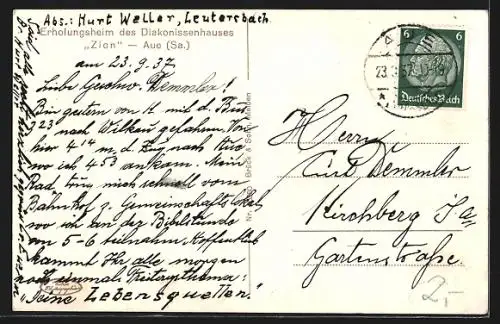 Abs.: Kurt Weller, Leutersbach
Erholungsheim des Diakonissenhauses
"Zion" — Aue (Sa.)
am 23.9.37.
Liebe Geschw. Demmler!
Bin gestern von H. mit d. Bus
3 23 nach Wilkau gefahren. Von
hier 4 14 m. d. Zug nach
wo ich 4 53 ankam. Mein
Rad trug mich schnell vom
Bahnhof z. Gemeinschaftslokal,
wo ich an der Bibelstunde
von 5-6 teilnahm. Hoffentlich
kommt Ihr alle morgen
noch einmal. Freitagsthema:
"Seine Lebensquellen."
6
Deutsches Reich
Herrn
Curt Demmler
Kirchberg i. Sa.
Gartenstraße
2,-